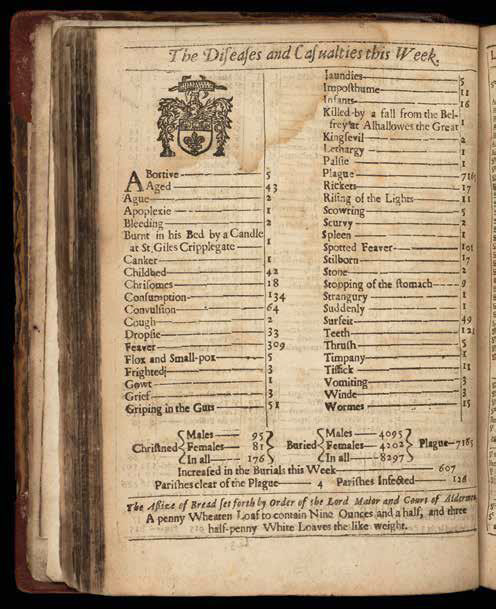 The Diſeaſes and Caſualties this Week.
ABortive 5
Aged 43
Ague 2
Apoplexie 1
Bleeding 2
Burnt in his Bed by a Candle
at St. Giles Cripplegate 1
Canker 1
Childbed 42
Chriſomes 18
Conſumption 134
Convulſion 64
Cough 2
Dropſie 33
Feaver 309
Flox and Small-pox 5
Frighted 3
Gowt 1
Grief 3
Griping in the Guts 51
Jaundies 5
Impoſthume 11
Infants 16
Killed by a fall from the Bel-
frey at Alhallowes the Great 1
Kingſevil 2
Lethargy 1
Palſie 1
Plague 7165
Rickets 17
Riſing of the Lights 11
Scowring 5
Scurvy 2
Spleen 1
Spotted Feaver 101
Stilborn 17
Stone 2
Stopping of the ſtomach 9
Strangury 1
Suddenly 1
Surfeit 49
Teeth 121
Thruſh 5
Timpany 1
Tiſſick 11
Vomiting 3
Winde 3
Wormes 15
Males 95 Males 4095
Chriſtned Females 81 Buried Females 4202 Plague 7165
In all 176 In all 8297
Increaſed in the Burials this Week 607
Pariſhes clear of the Plague 4 Pariſhes Infected 126
The Aſſize of Bread ſet forth by Order of the Lord Maior and Court of Aldermen,
A penny Wheaten Loaf to contain Nine Ounces and a half, and three
half-penny White Loaves the like weight.